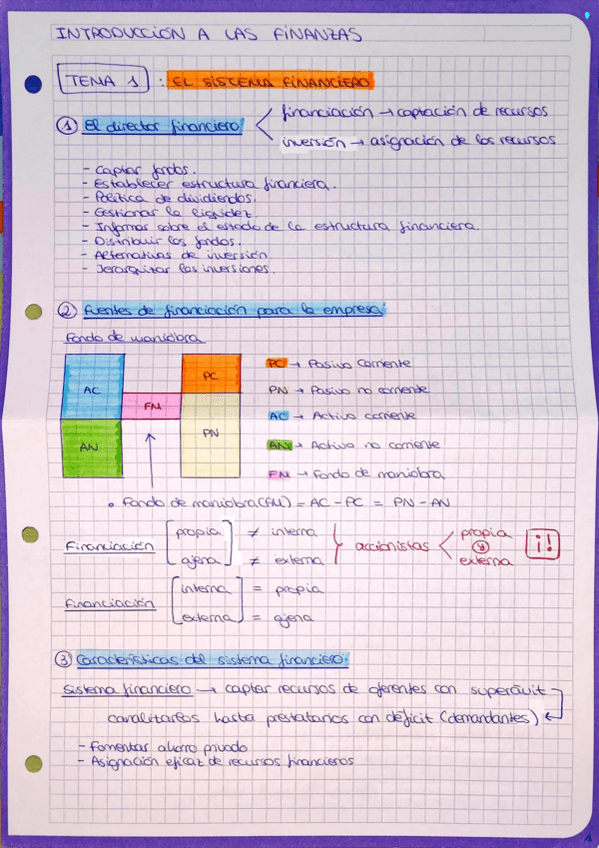 INTRODUCCIÓN A LAS FINANZAS
TEMA 1 : EL SISTEMA FINANCIERO
① El director financiero
financiación → captación de recursos
inversión → asignación de los recursos
- Captar fondos.
- Establecer estructura financiera.
- Política de dividendos.
- Gestionar la liquidez.
- Informar sobre el estado de la estructura financiera.
- Distribuir los fondos.
- Alternativas de inversión.
- Jerarquizar las inversiones.
② Fuentes de financiación para la empresa
Fondo de maniobra
AC
AN
FM
PC
PN
PC → Pasivo Corriente
PN → Pasivo no corriente
AC → Activo corriente
AN → Activo no corriente
FM → Fondo de maniobra
• Fondo de maniobra (FM) = AC - PC = PN - AN
Financiación
propia ≠ interna
ajena ≠ externa
accionistas
propia
y
externa
¡!
Financiación
interna = propia
externa = ajena
③ Características del sistema financiero.
Sistema financiero → captar recursos de oferentes con superávit
canalizarlos hasta prestatarios con déficit (demandantes) ←
- Fomentar ahorro privado
- Asignación eficaz de recursos financieros